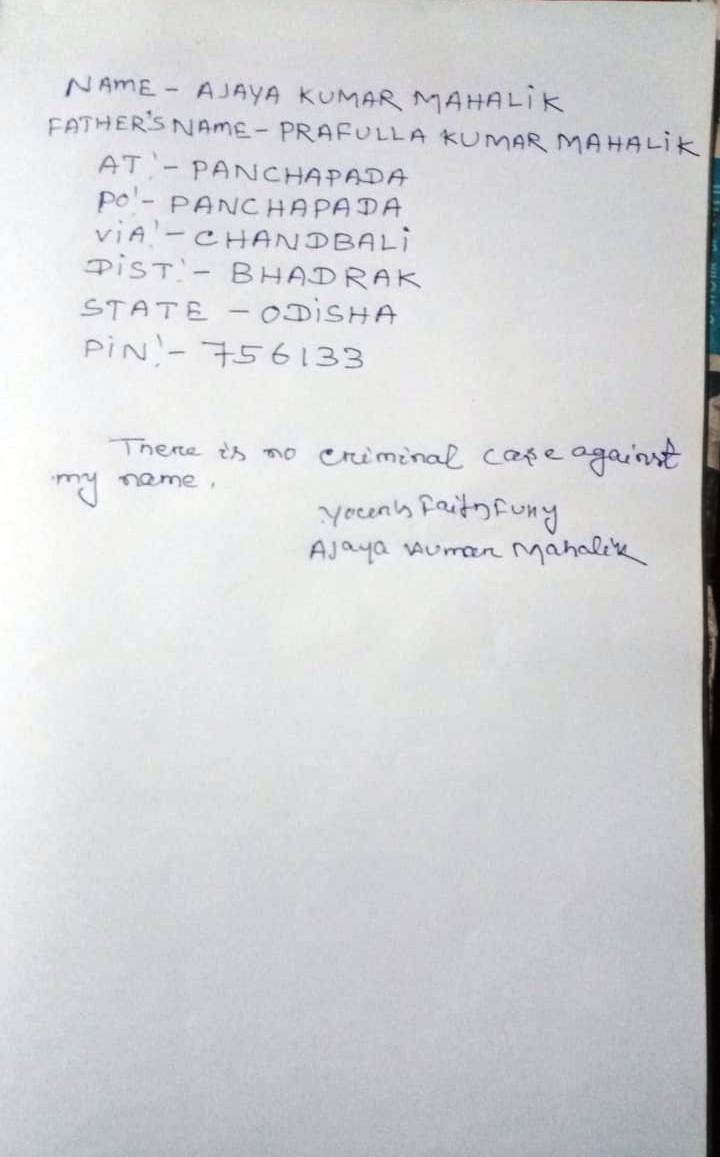 NAME - AJAYA KUMAR MAHALiK
FATHER'S NAME - PRAFULLA KUMAR MAHALiK
AT:- PANCHAPADA
PO:- PANCHAPADA
ViA:- CHANDBALi
DiST:- BHADRAK
STATE - ODiSHA
PiN:- 756133
There is no criminal case against
my name.
Yours Faithfully
AJaya Kumar Mahalik